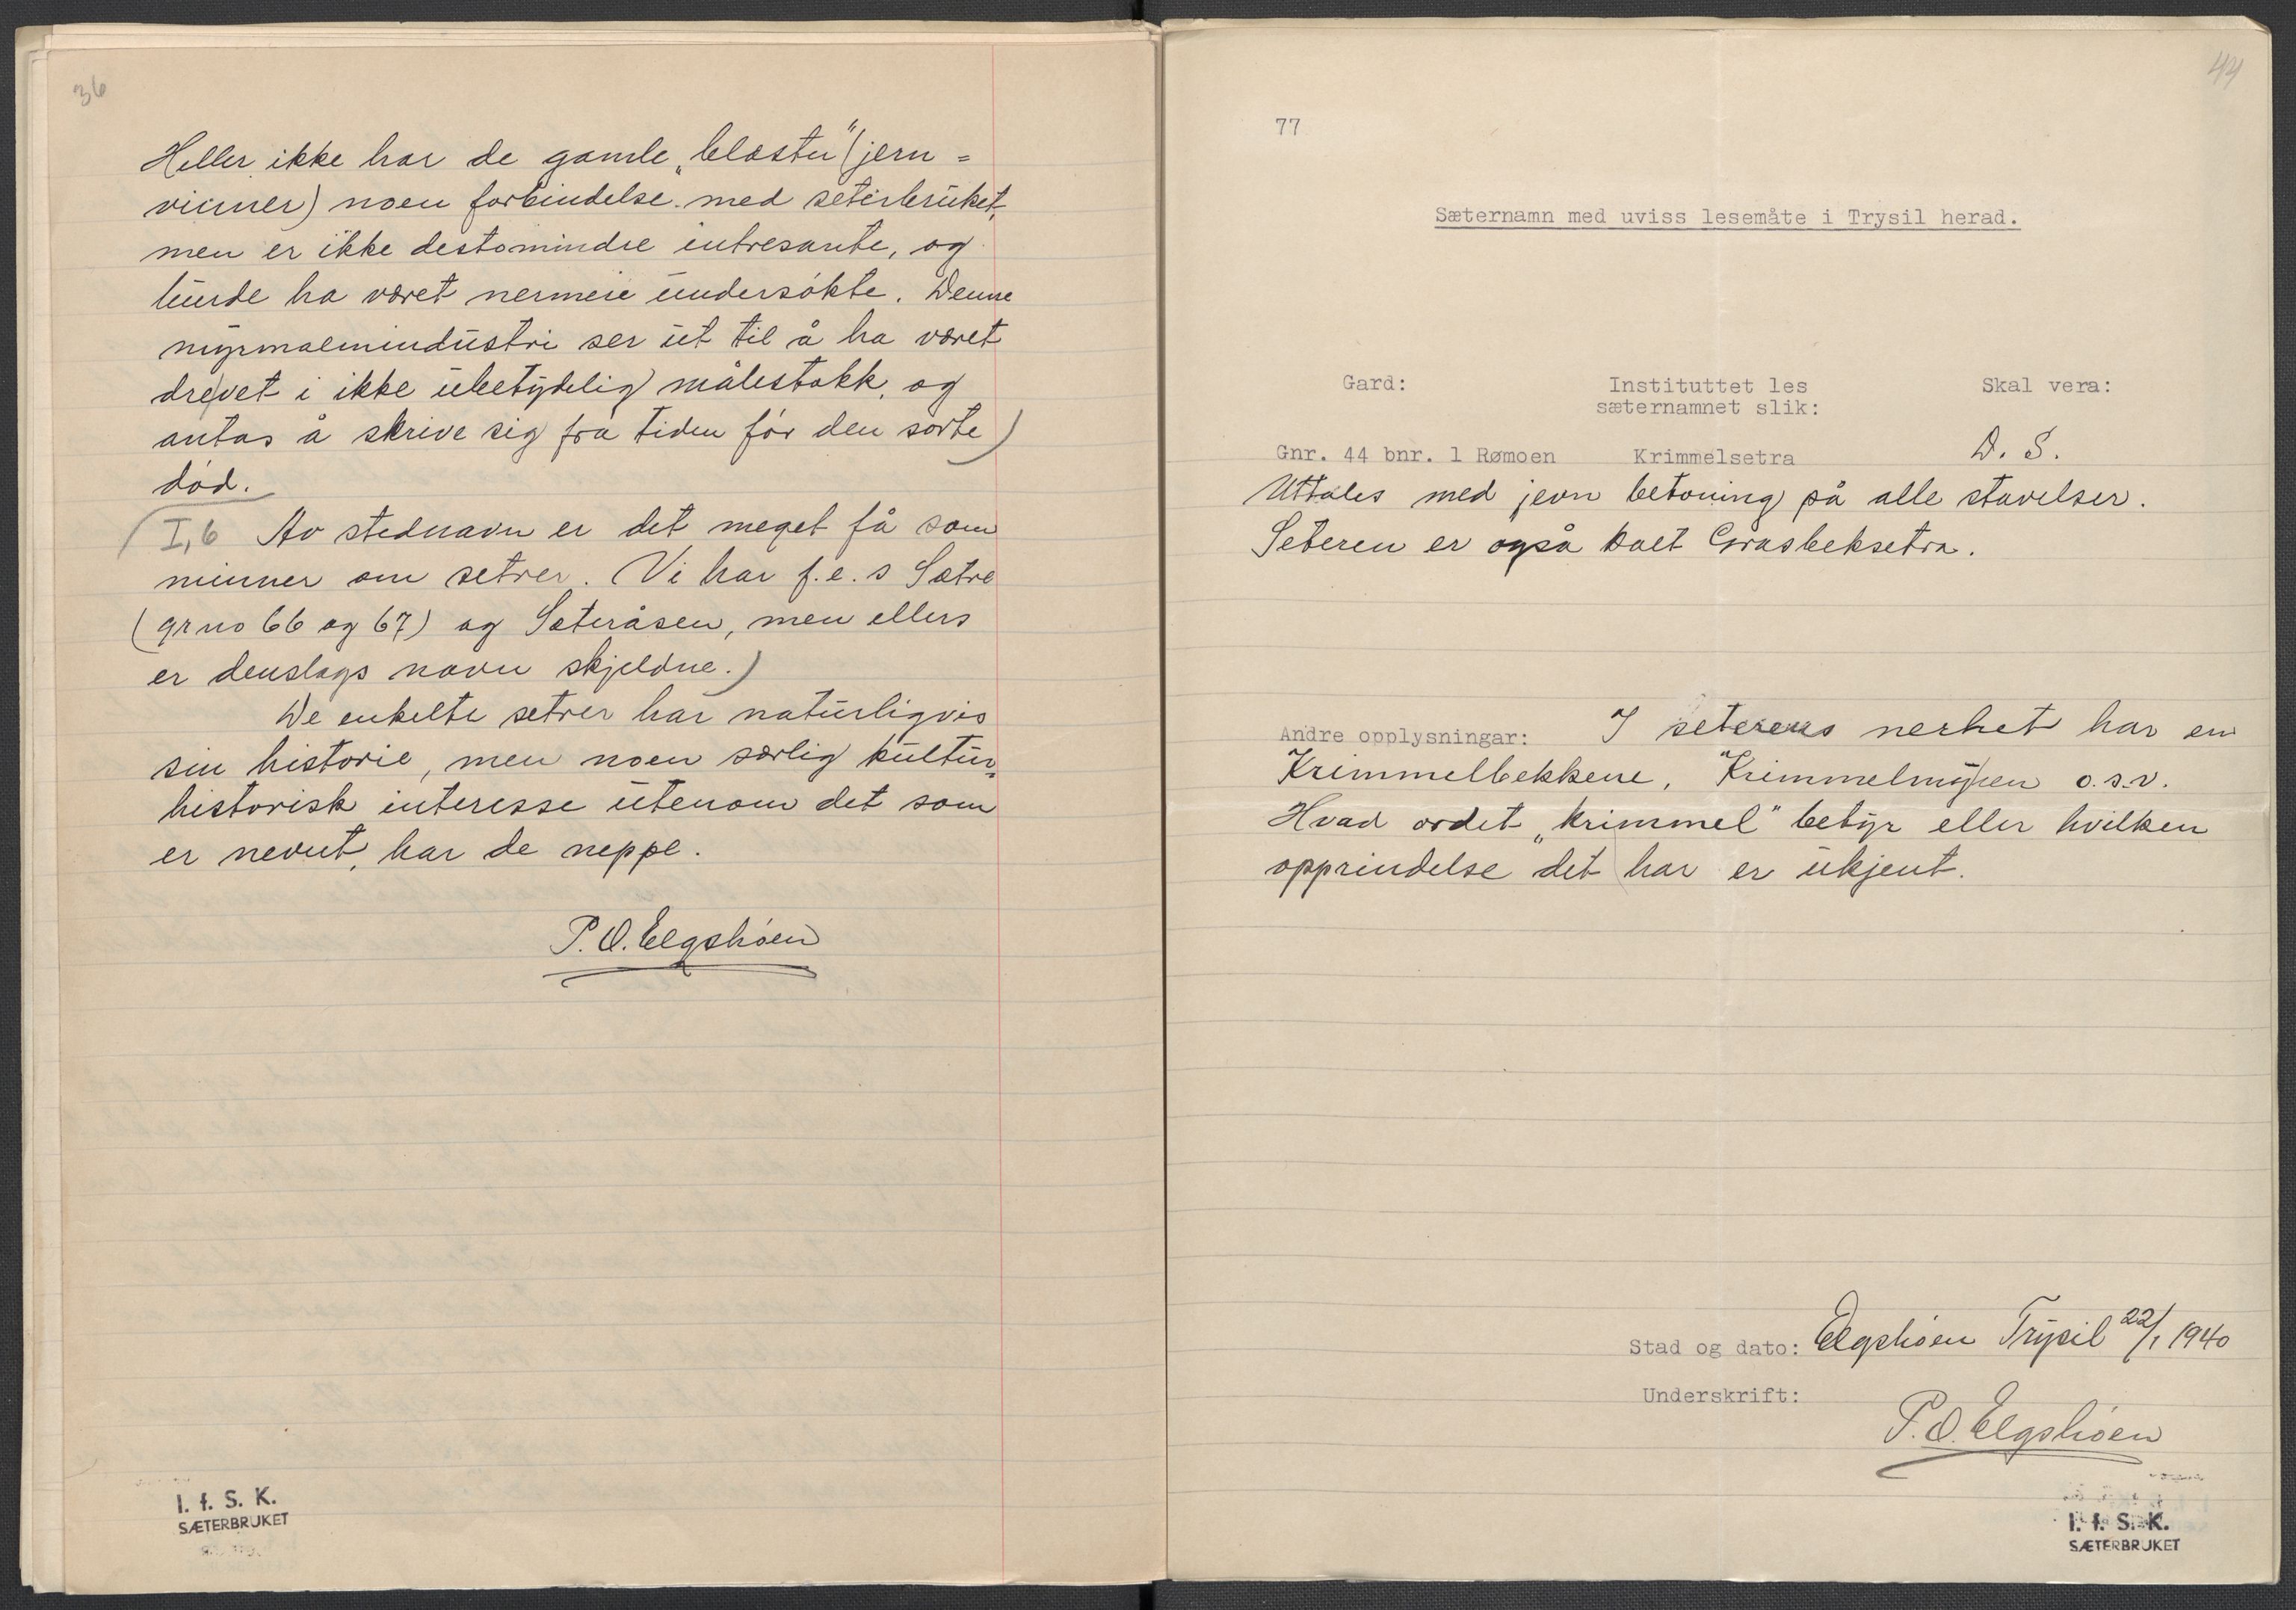 36
Heller ikke har de gamle „blæster" (jern=
vinner) noen forbindelse med seterbruket,
men er ikke destomindre intresante, og
burde ha været nermere undersøkte. Denne
myrmalmindustri ser ut til å ha været
drevet i ikke ubetydelig målestokk, og
antas å skrive sig fra tiden før den sorte
død.
I,6 Av stednavn er det meget få som
minner om setrer. Vi har f.e.s Sætre
(grno 66 og 67) og Sæteråsen, men ellers
er denslags navn skjeldne.)
De enkelte setrer har naturligvis
sin historie, men noen særlig kultur=
historisk interesse utenom det som
er nevnt, har de neppe.
P. O. Elgshøen
I. f. S. K.
SÆTERBRUKET
44
77
Sæternamn med uviss lesemåte i Trysil herad.
Gard: Instituttet les Skal vera:
sæternamnet slik:
Gnr. 44 bnr. 1 Rømoen Krimmelsetra D. S.
Uttales med jevn betoning på alle stavelser.
Seteren er også kalt Gråsbeksetra.
Andre opplysningar: I seterens nerhet har en
Krimmelbekkene, Krimmelmyren o.s.v.
Hvad ordet „krimmel" betyr eller hvilken
opprindelse det har er ukjent.
Stad og dato: Elgshøen Trysil 22/1 1940
Underskrift:
P. O. Elgshøen
I. f. S. K.
SÆTERBRUKET